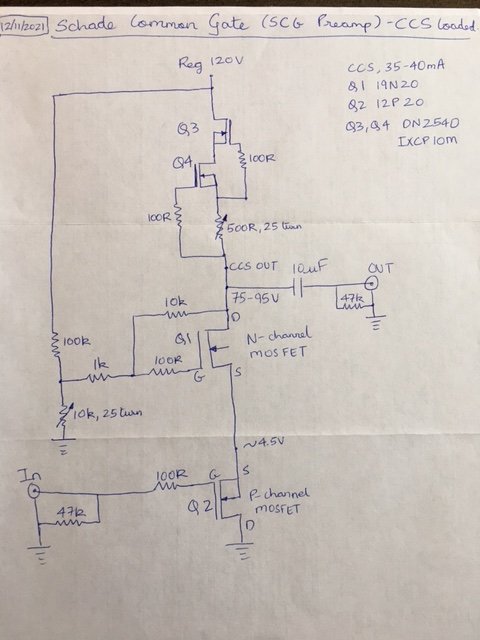 12/11/2021 Schade Common Gate (SCG Preamp) - CCS loaded
Reg 120V
CCS, 35-40mA
Q1 19N20
Q2 12P20
Q3, Q4 DN2540
IXCP10m
Q3
100R
Q4
100R
500R, 25 turn
CCS OUT
10uF
OUT
75-95V
47k
10k
D
100k
Q1
N-channel
MOSFET
1k
100R
G
S
10k, 25 turn
~4.5V
In
100R
G
S
P-channel
MOSFET
Q2
47k
D